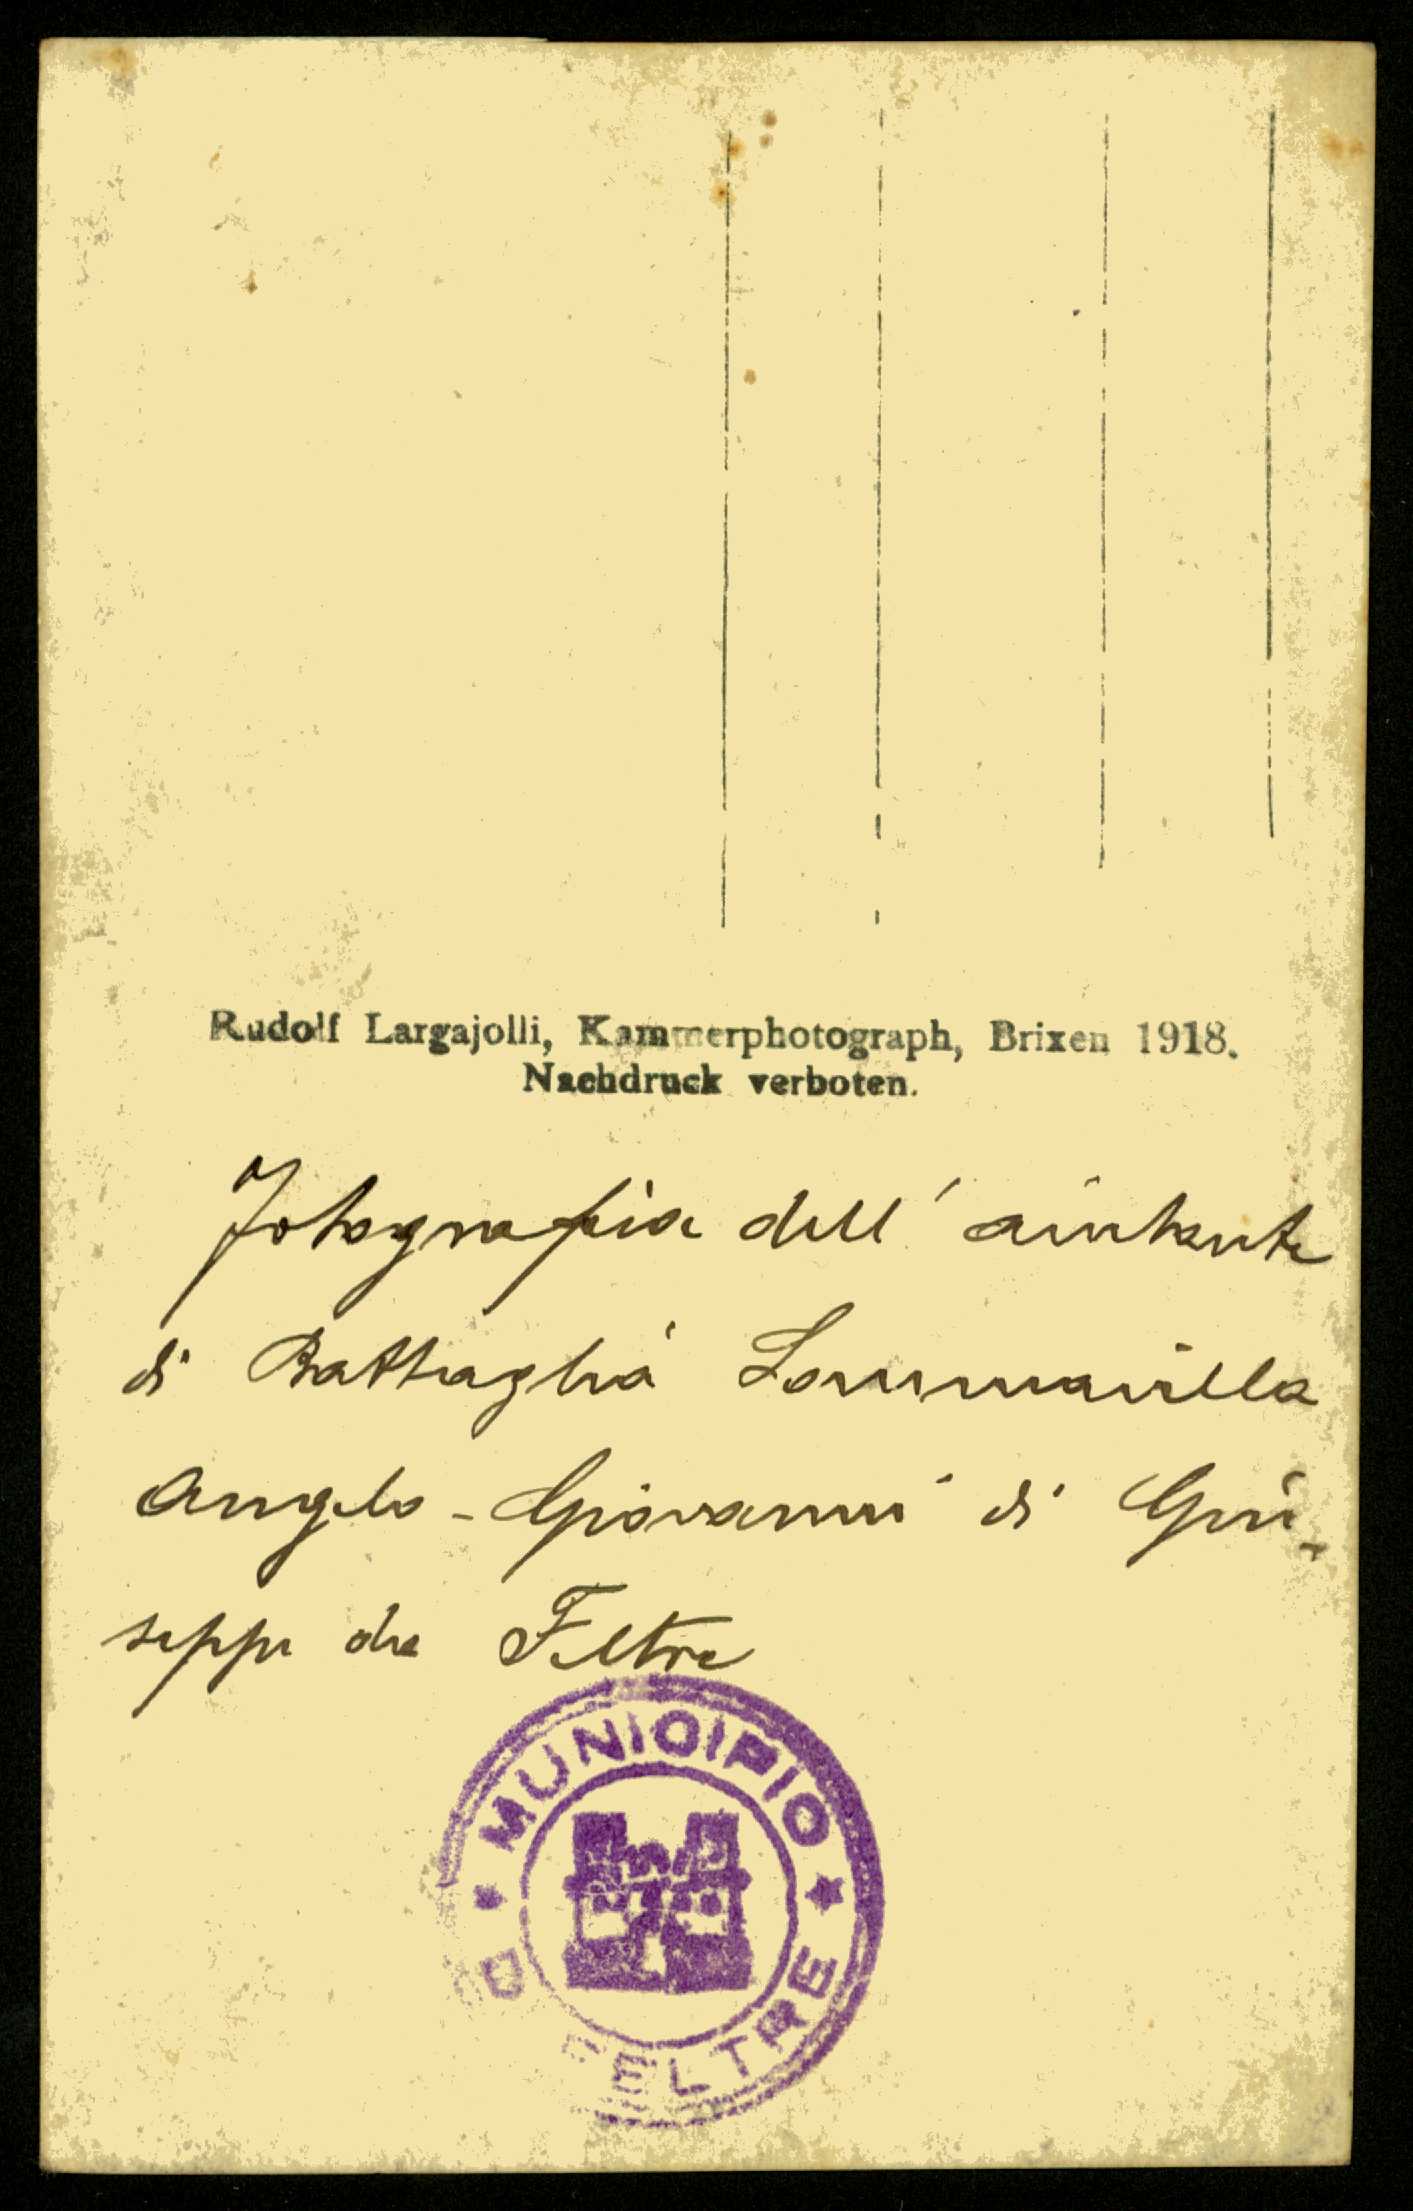 Rudolf Largajolli, Kammerphotograph, Brixen 1918.
Nachdruck verboten.
Fotografia dell' aiutante
di Battaglia Sommavilla
Angelo - Giovanni di Giu-
seppe da Feltre
MUNICIPIO
D FELTRE